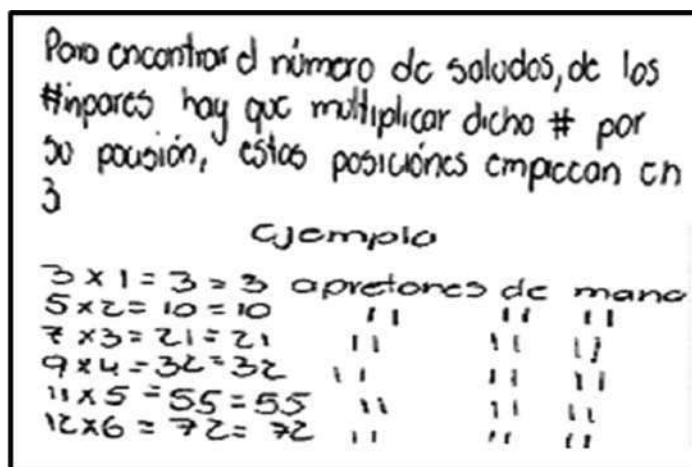 Para encontrar el número de saludos, de los
#inpares hay que multiplicar dicho # por
su pocisión, estas posiciónes empiezan en
3
Ejemplo
3 x 1 = 3 = 3 apretones de mano
5 x 2 = 10 = 10 " " "
7 x 3 = 21 = 21 " " "
9 x 4 = 32 = 32 " " "
11 x 5 = 55 = 55 " " "
12 x 6 = 72 = 72 " " "